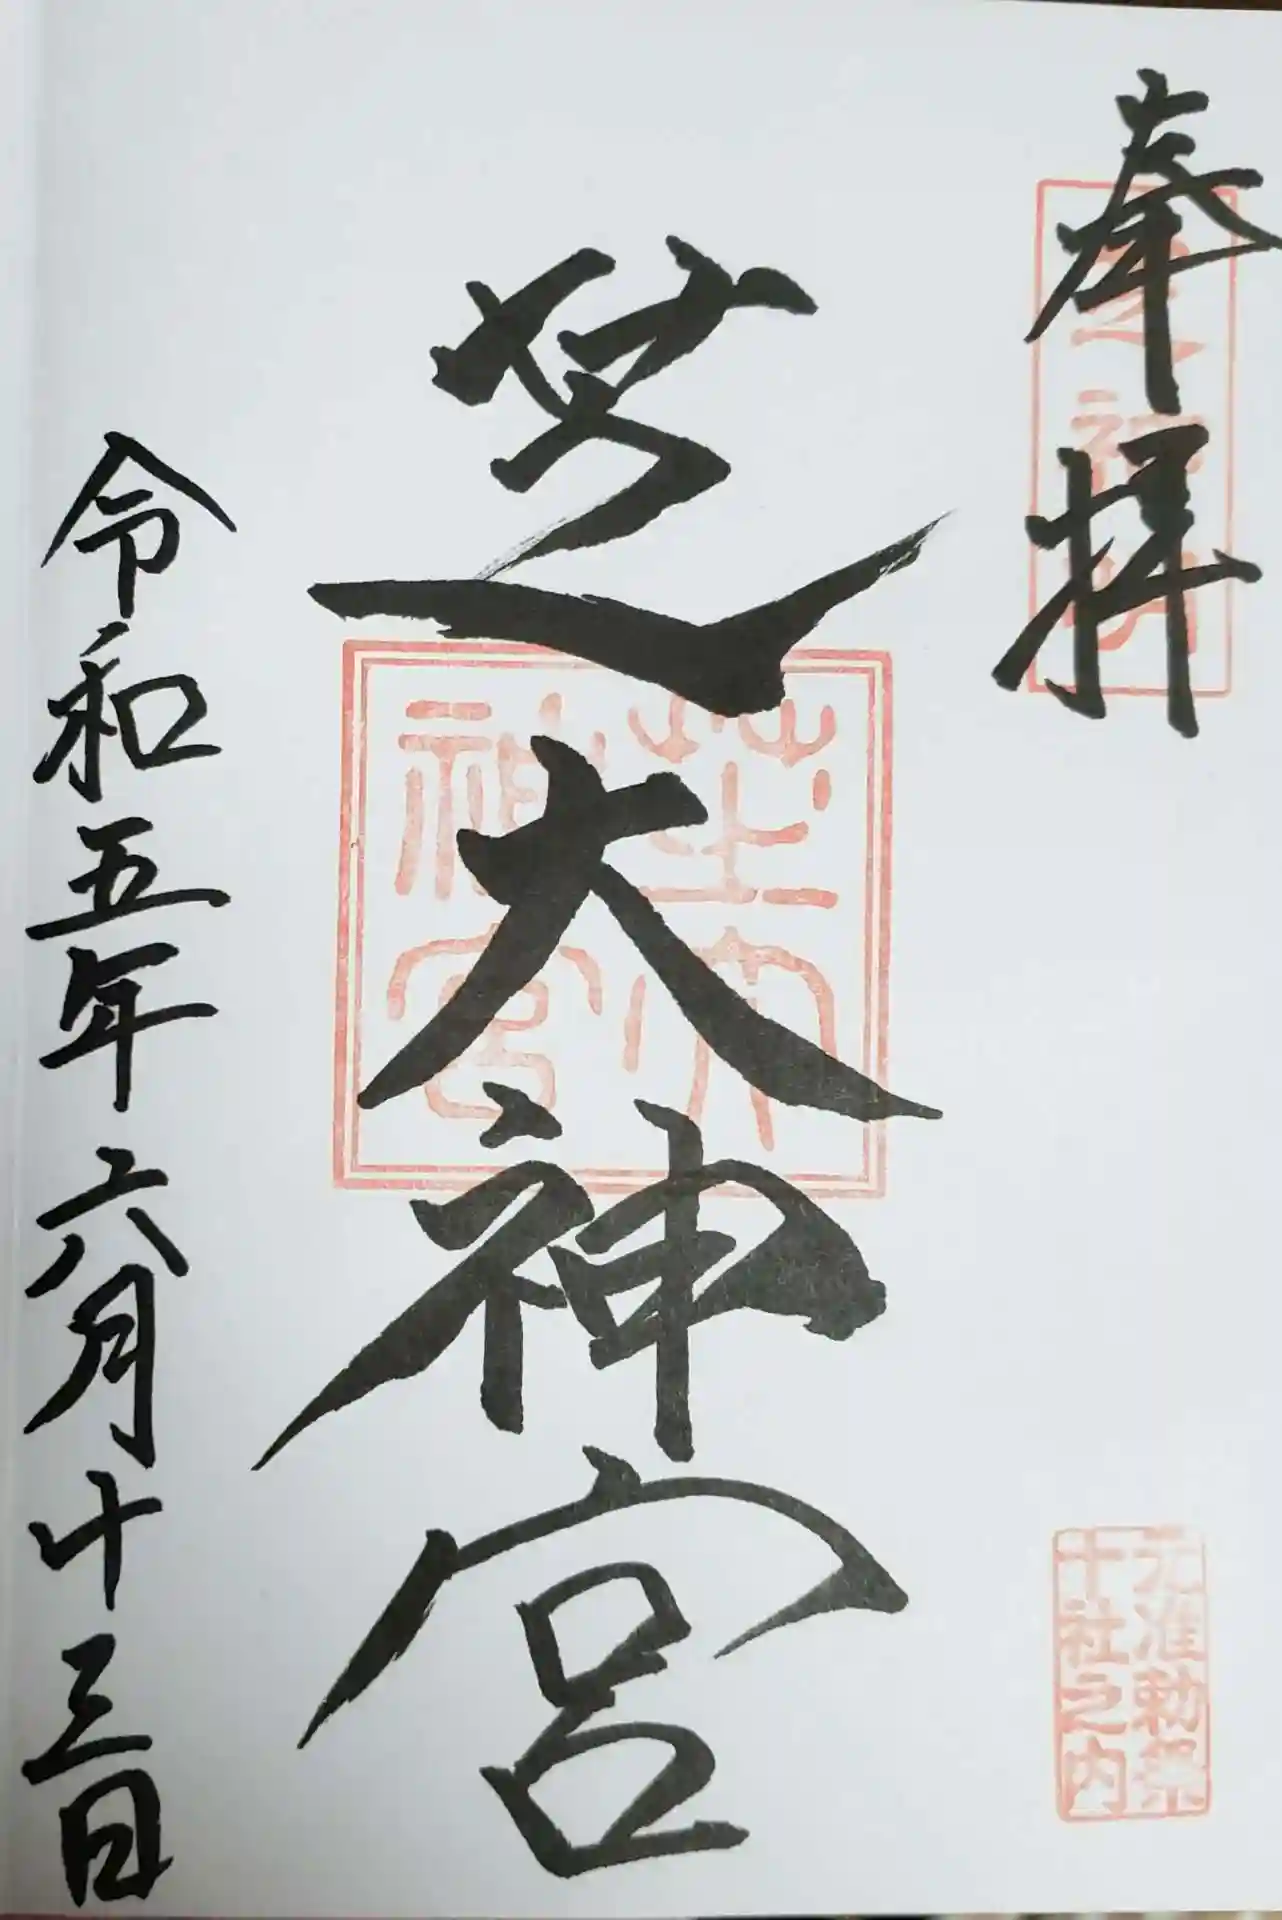 奉拝
元准勅祭
十社之内
芝大神宮
芝大
神宮
令和五年六月十三日